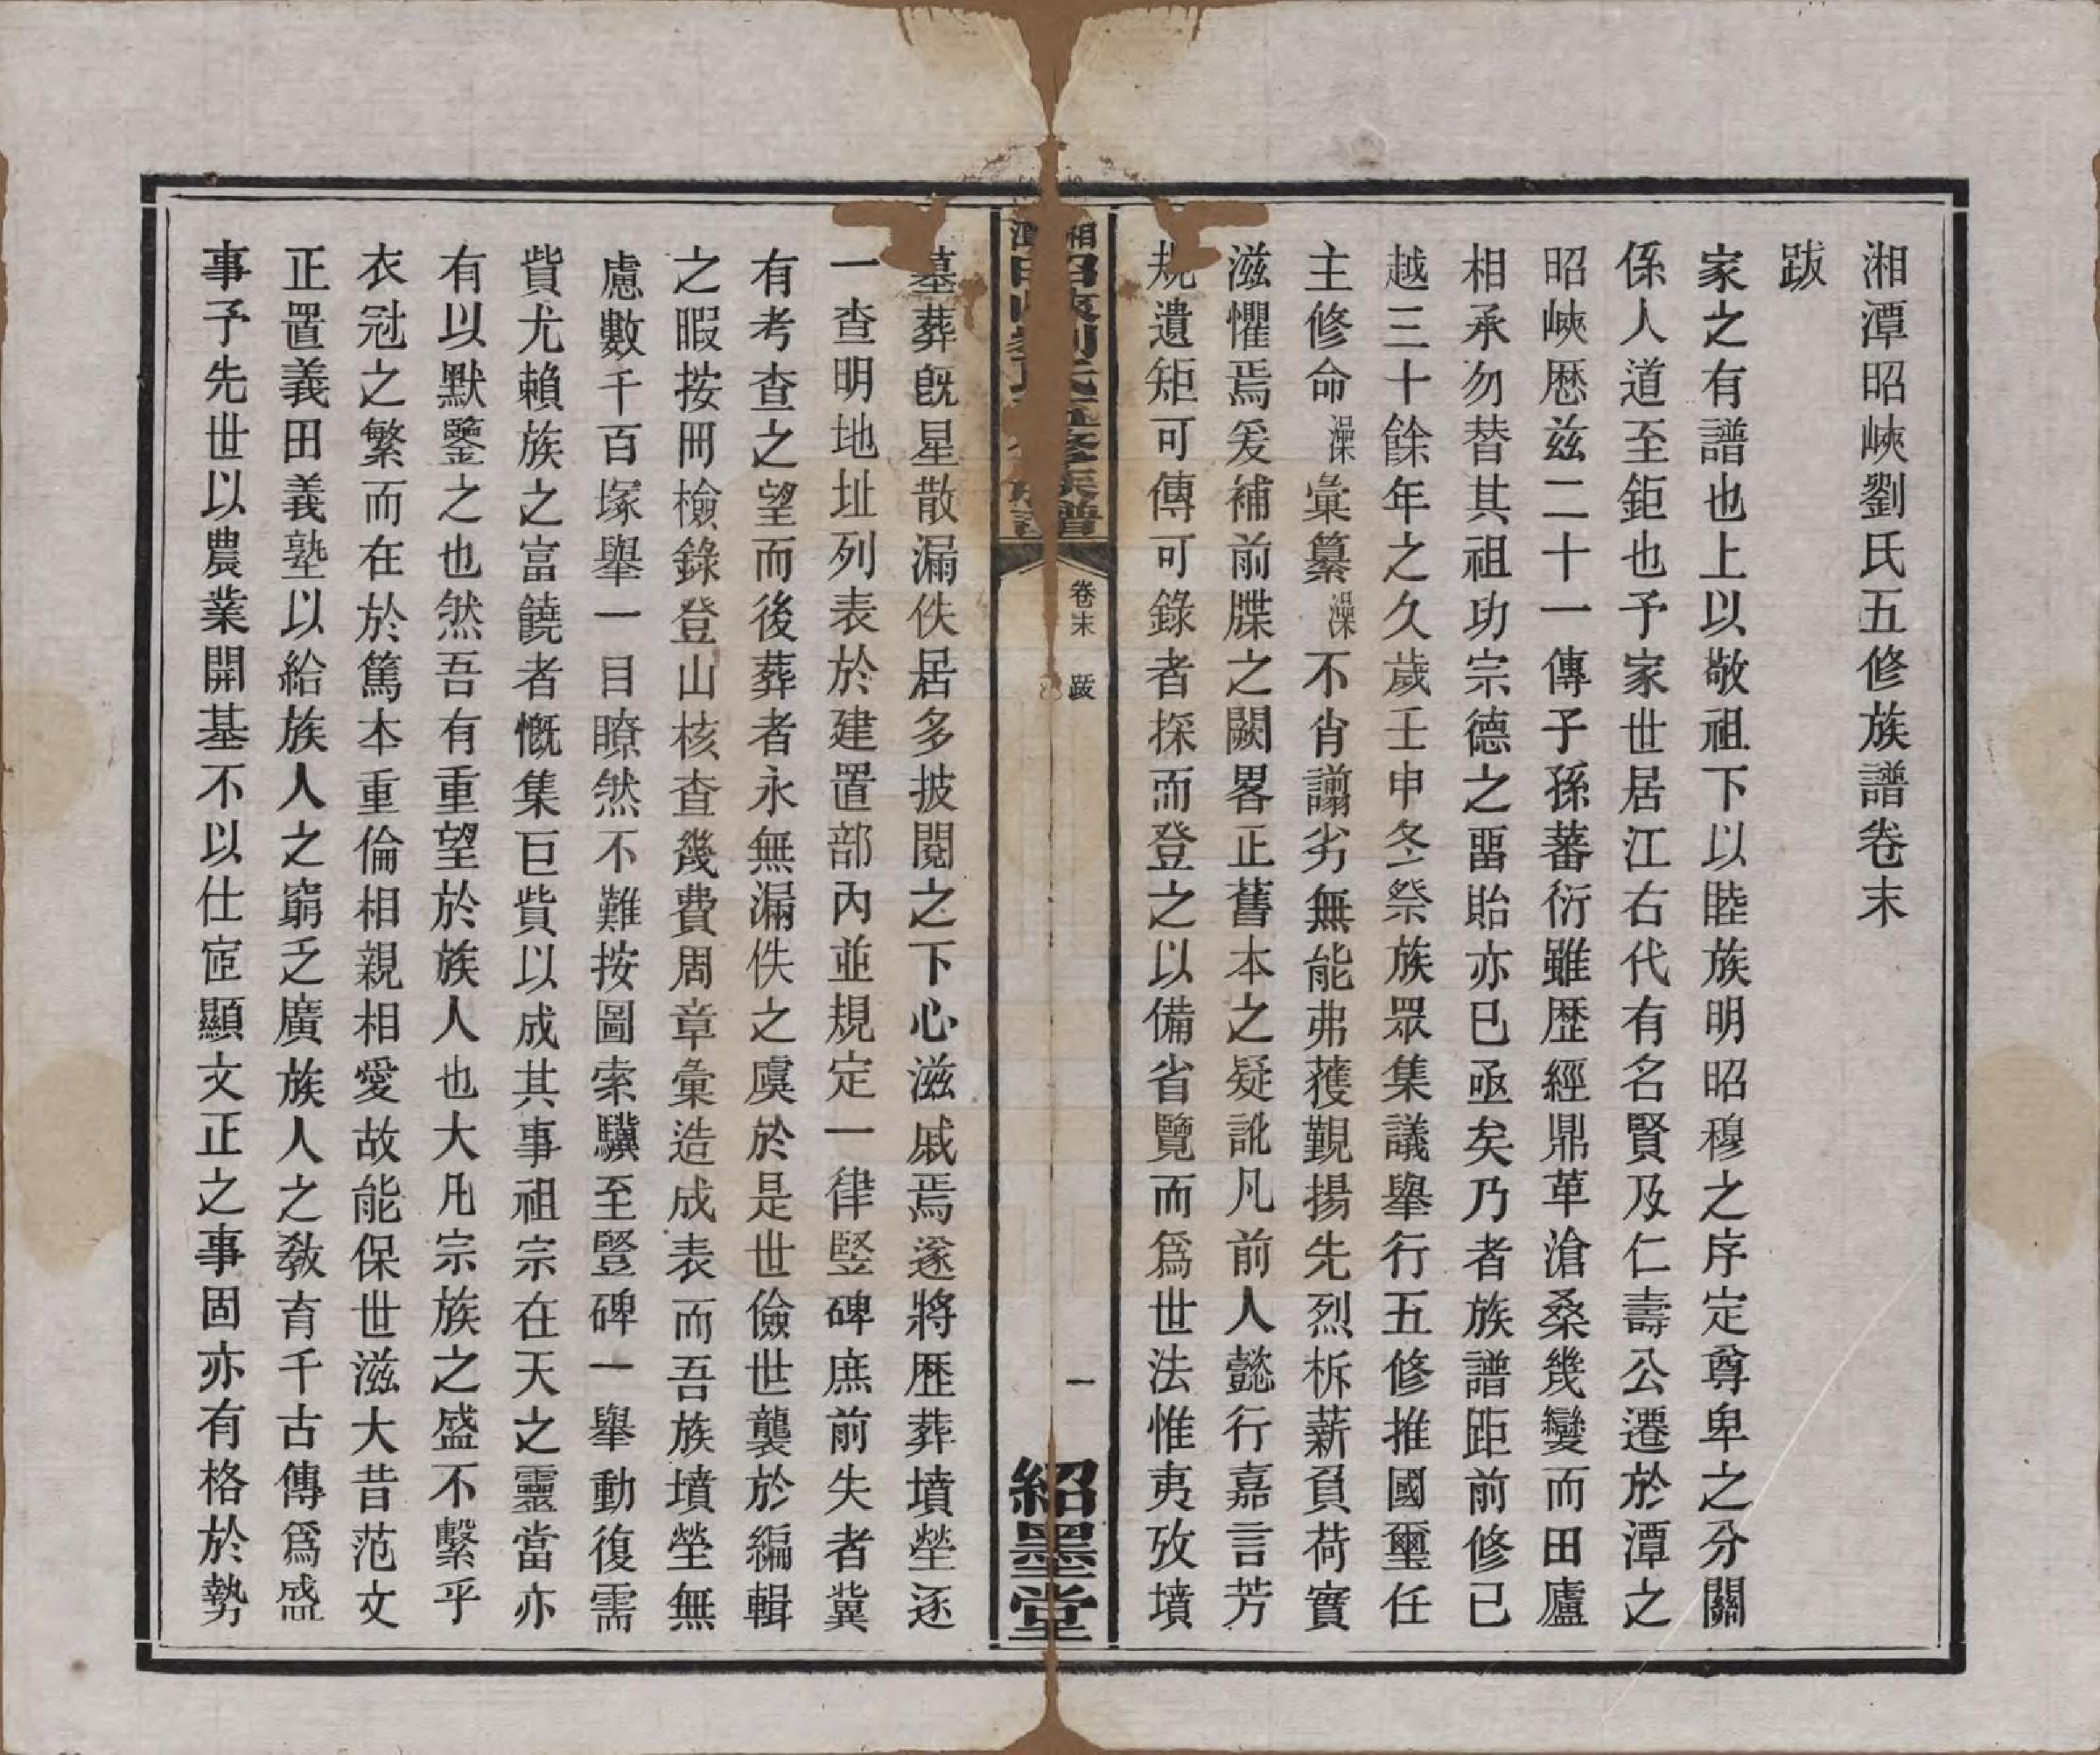 湘潭昭峽劉氏五修族譜卷末
跋
家之有譜也上以敬祖下以睦族明昭穆之序定尊卑之分關
係人道至鉅也予家世居江右代有名賢及仁壽公遷於潭之
昭峽厯兹二十一傳子孫蕃衍雖歷經鼎革滄桑幾變而田廬
相承勿替其祖功宗德之畱貽亦已亟矣乃者族譜距前修已
越三十餘年之久歲壬申冬祭族眾集議舉行五修推國璽任
主修命澡彙纂澡不肖謭劣無能弗獲覲揚先烈析薪負荷實
滋懼焉爰補前牒之闕畧正舊本之疑訛凡前人懿行嘉言芳
規遺矩可傳可錄者採而登之以備省覽而爲世法惟夷攷墳
湘潭昭峽劉氏五修族譜
卷末 跋
一
紹墨堂
墓葬旣星散漏佚居多披閱之下心滋戚焉遂將歷葬墳塋逐
一查明地址列表於建置部內並規定一律竪碑庶前失者冀
有考查之望而後葬者永無漏佚之虞於是世儉世襲於編輯
之暇按冊檢錄登山核查幾費周章彙造成表而吾族墳塋無
慮數千百塚舉一目瞭然不難按圖索驥至豎碑一舉動復需
貲尤賴族之富饒者慨集巨貲以成其事祖宗在天之靈當亦
有以默鑒之也然吾有重望於族人也大凡宗族之盛不繫乎
衣冠之繁而在於篤本重倫相親相愛故能保世滋大昔范文
正置義田義塾以給族人之窮乏廣族人之教育千古傳爲盛
事予先世以農業開基不以仕宦顯文正之事固亦有格於勢